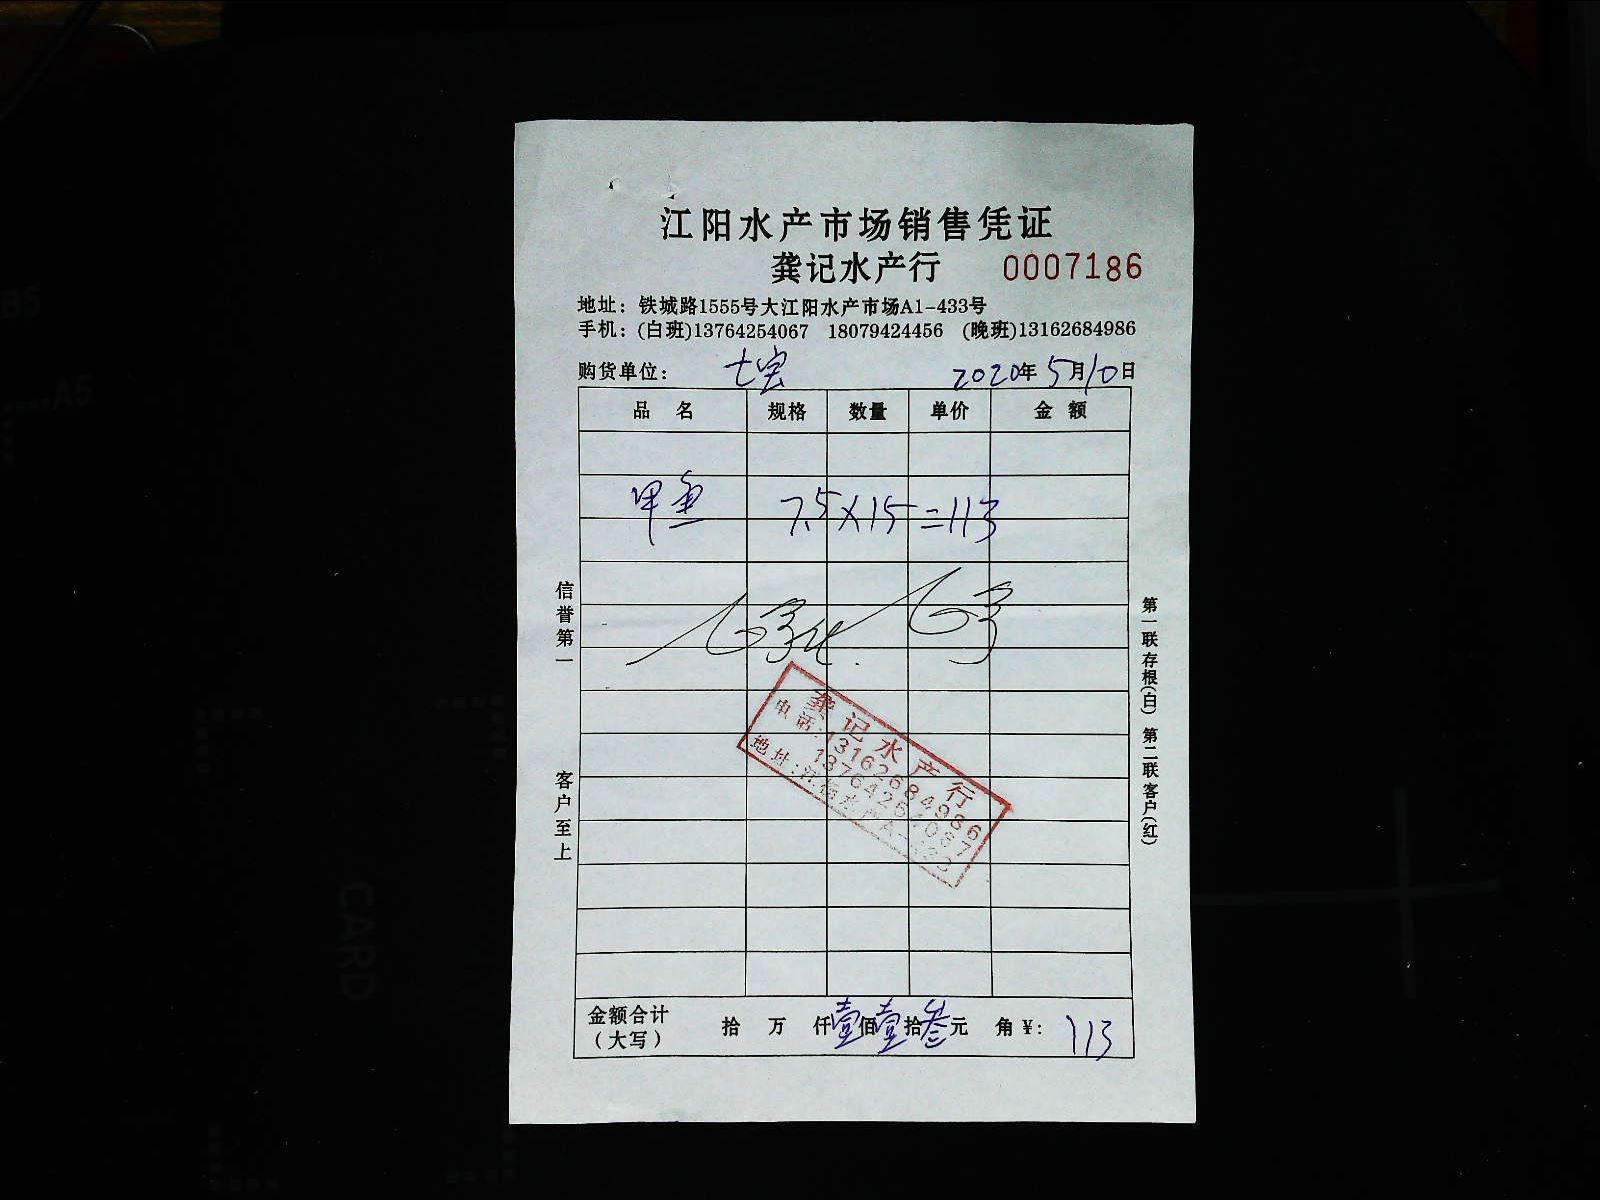 江阳水产市场销售凭证
龚记水产行 0007186
地址：铁城路1555号大江阳水产市场A1-433号
手机：(白班)13764254067 18079424456 (晚班)13162684986
购货单位： 七宝 2020年5月10日
品名 规格 数量 单价 金额
甲鱼 7.5×15=113
龚记水产行
电话：13162684986
13764254067
地址：江阳水产A
信誉第一
客户至上
第一联存根(白) 第二联客户(红)
金额合计 拾 万 仟壹佰壹拾叁元 角 ¥： 113
(大写)
B5
A5
CARD